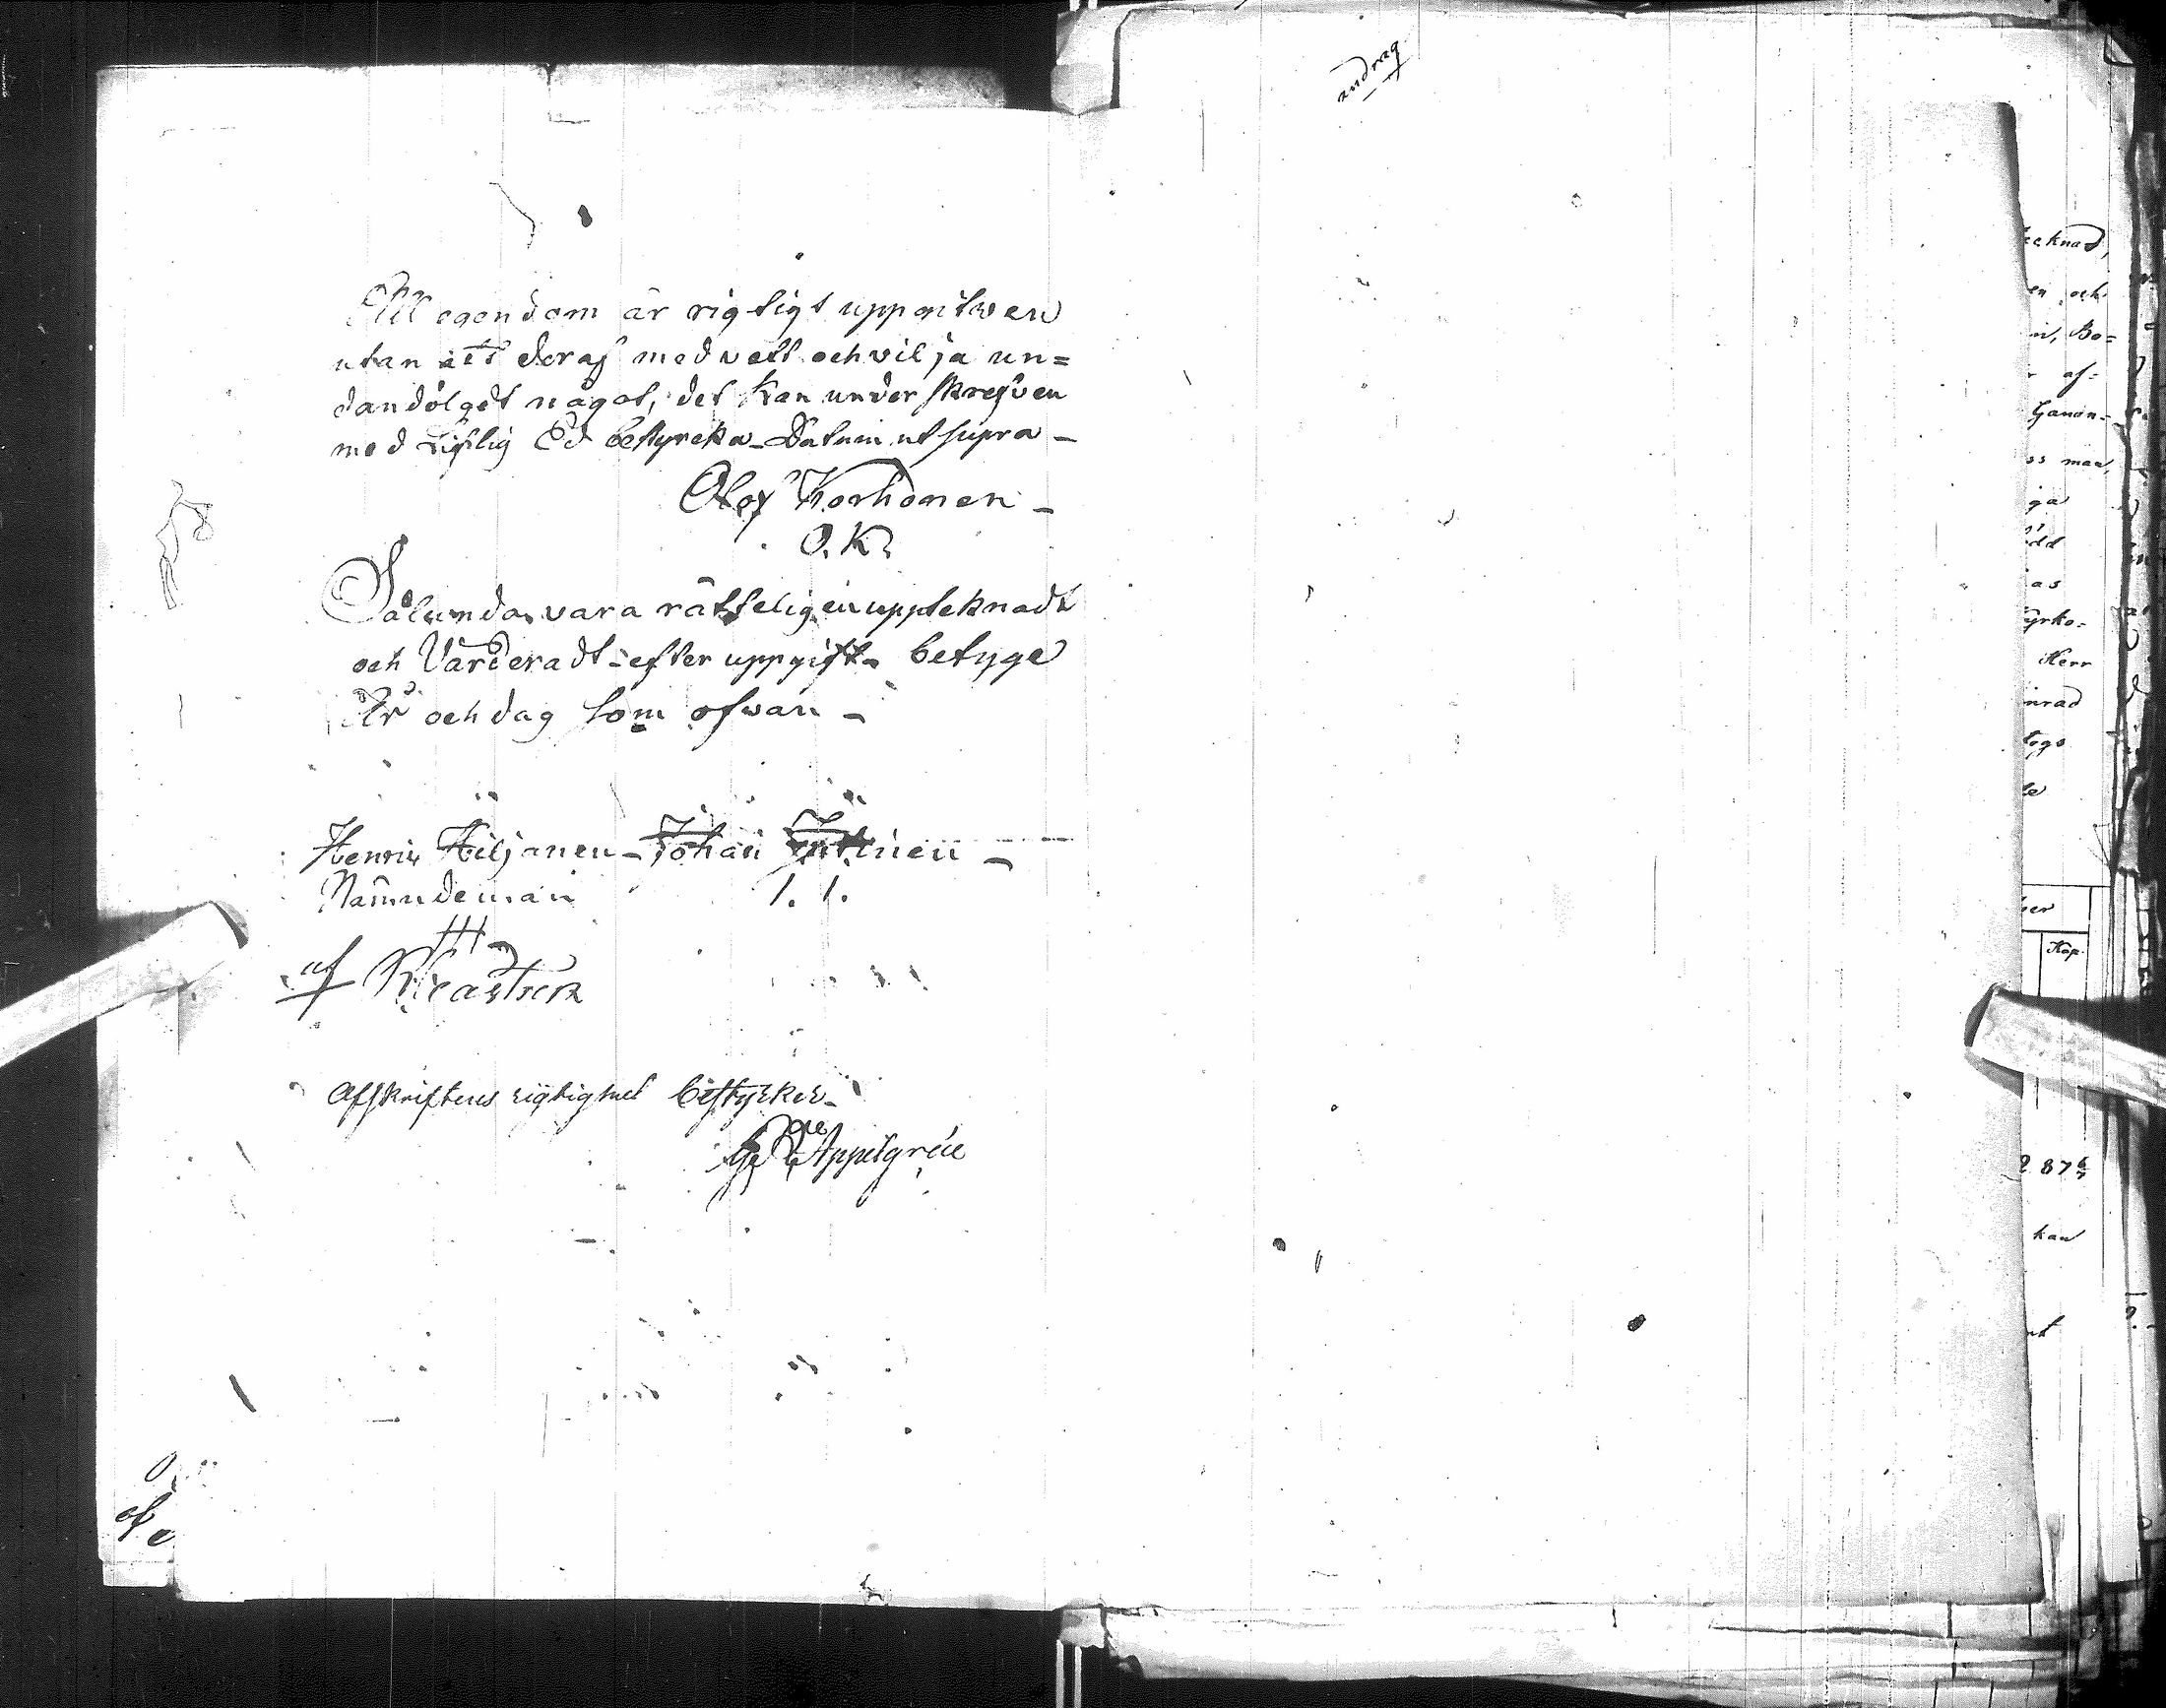 All egendom är rigtigt uppgitwen
utan att deraf med vett och vilja un=
dandölget något, det kan underskrefven
med Liflig Ed bestyrcka – Datum ut supra –
Olof Korhonen –
O. K.
Sålunda vara rätteligen uppteknadt
och Värderadt efter uppgift – betyge
År och dag som ofwan –
Henrik Hiljanen – Johan –
Nämndeman
af
Afskriftens rigtighet bestyrker
Appelgrén
andrag
tecknad,
en och
Bo=
af=
man,
ga
as
Herr
nrad
togs
Kop.
2 87
kan